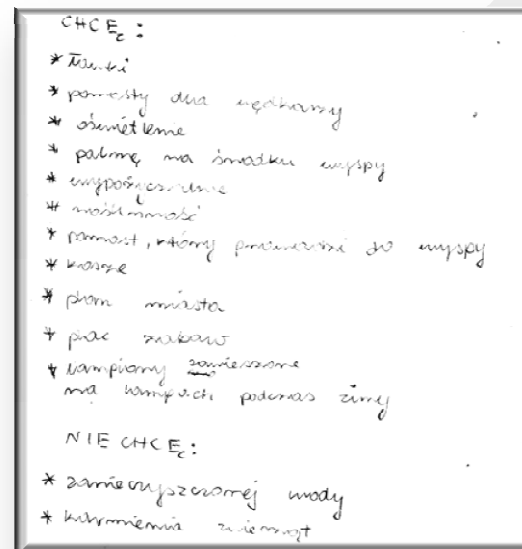 CHCĘ:
* ławki
* pomosty dla wędkarzy
* oświetlenie
* palmę na środku wyspy
* wypożyczalnie
* roślinność
* pomost, który prowadzi do wyspy
* kosze
* plan miasta
* plac zabaw
* lampiony zawieszone
na lampach podczas zimy
NIE CHCĘ:
* zanieczyszczonej wody
* karmienia zwierząt